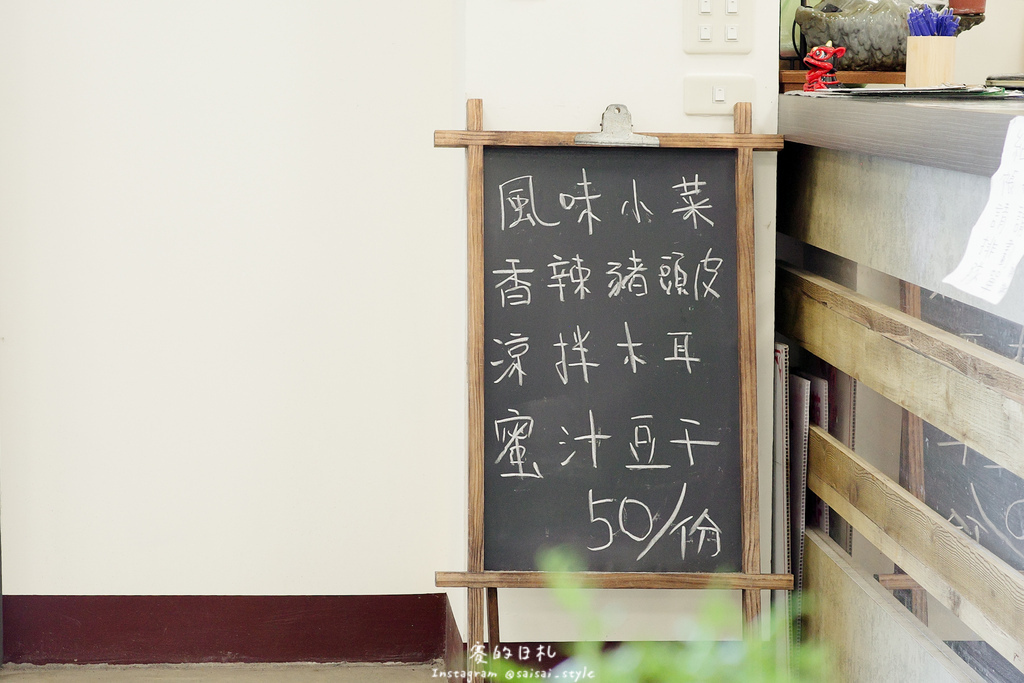 風味小菜
香辣豬頭皮
涼拌木耳
蜜汁豆干
50/份
賽的日札
Instagram @saisai_style